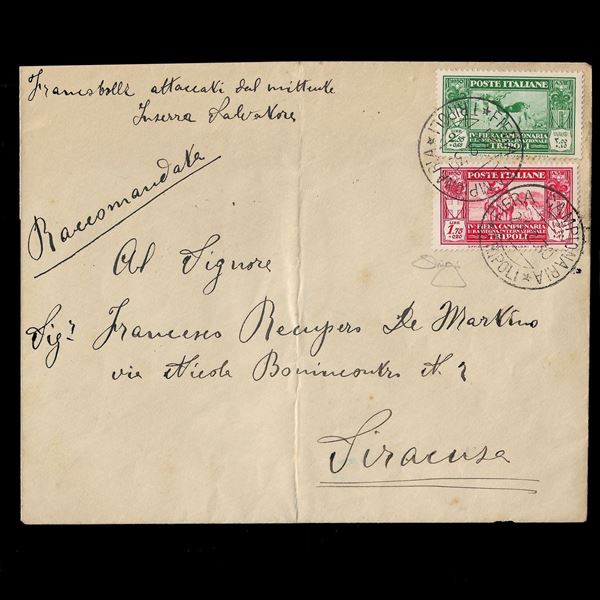 Francobolli attaccati dal mittente
Inserra Salvatore
Raccomandata
Al Signore
Sigr Francesco Recupero De Martino
via Nicola Bonincontro N. 2
Siracusa
POSTE ITALIANE
IV. FIERA CAMPIONARIA
TRIPOLI
POSTE ITALIANE
LIRE
1,75
+0,20
IV. FIERA CAMPIONARIA
E RASSEGNA INTERNAZIONALE
TRIPOLI
FIERA CAMPIONARIA
TRIPOLI
FIERA CAMPIONARIA
TRIPOLI